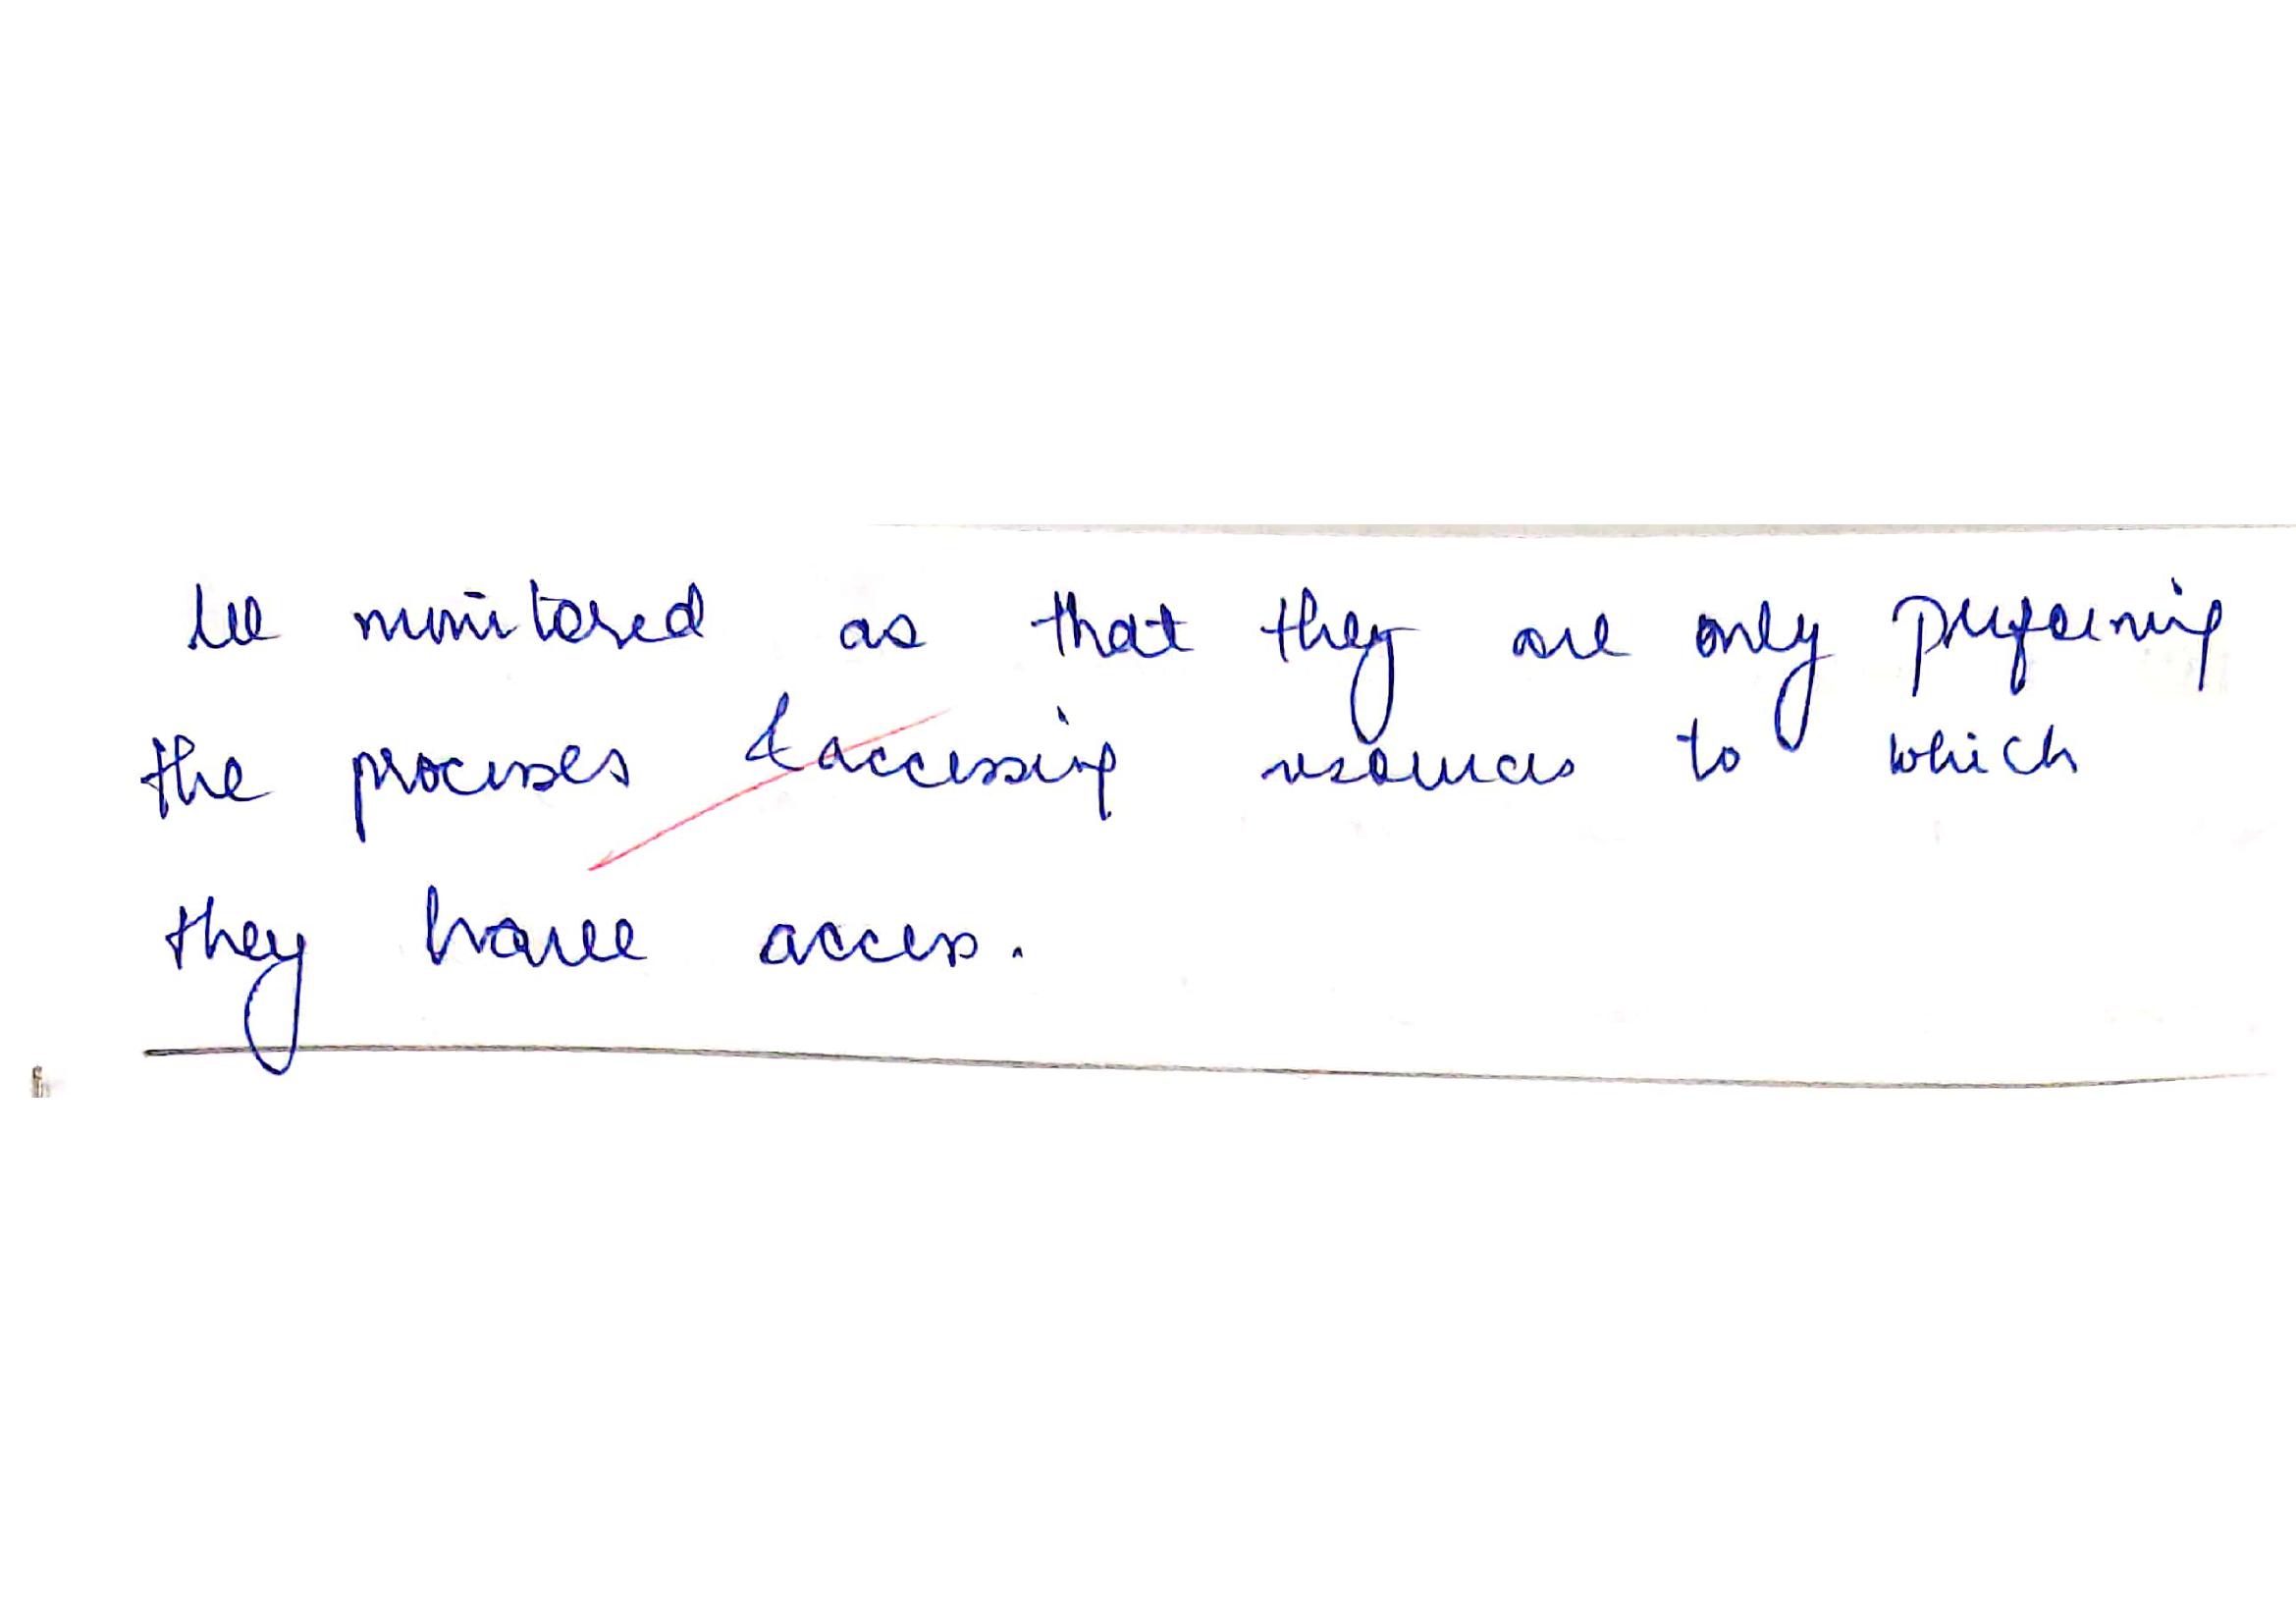 be monitored as that they are only performing
the processes & accessing resources to which
they have access.